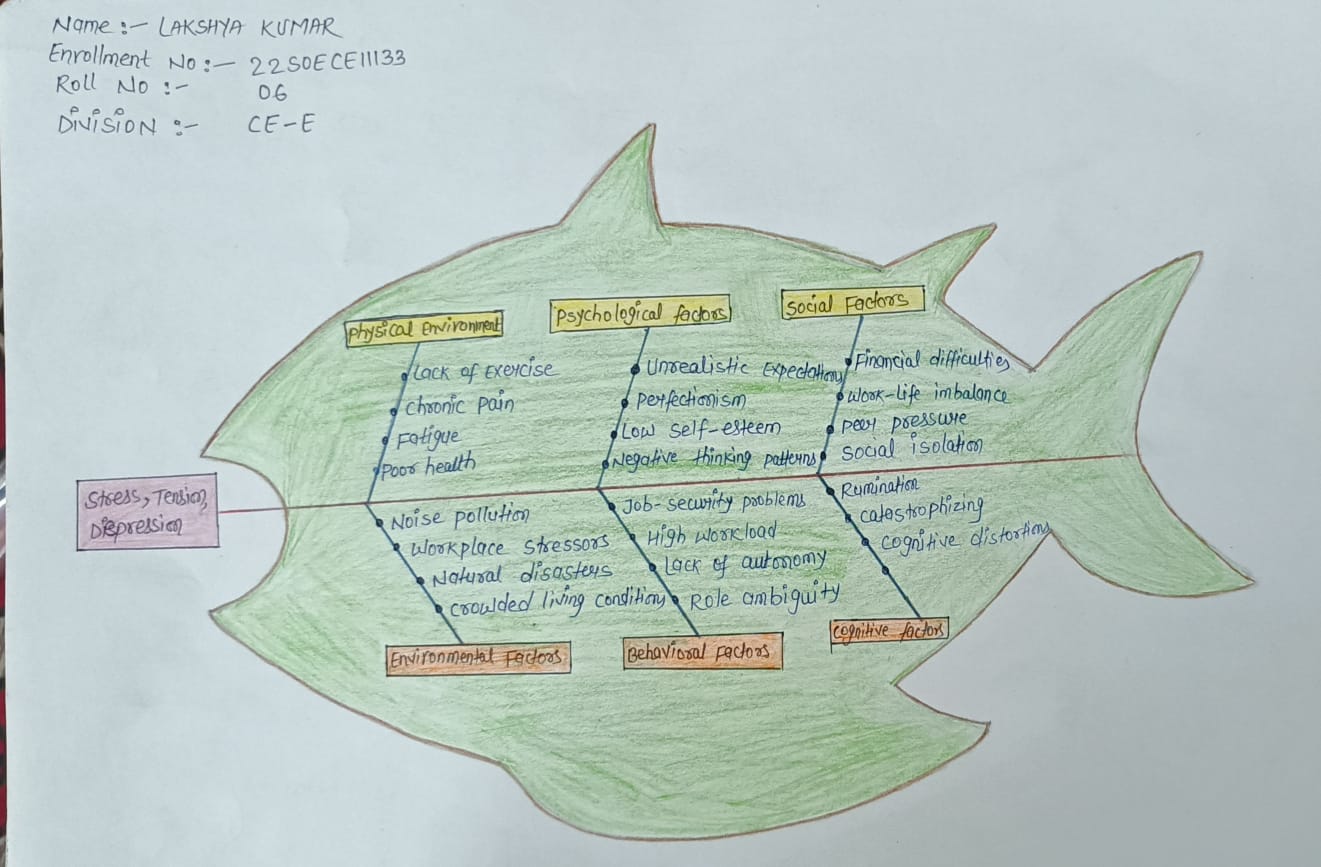 Name :- LAKSHYA KUMAR
Enrollment No :- 22SOECE11133
Roll No :- 06
DIVISION :- CE-E
Physical Environment
Lack of Exercise
Chronic Pain
Fatigue
Poor health
Psychological factors
Unrealistic Expectations
Perfectionism
Low self-esteem
Negative thinking patterns
Social Factors
Financial difficulties
Work-life imbalance
Peer pressure
Social isolation
Stress, Tension,
Depression
Noise pollution
Workplace stressors
Natural disasters
Crowded living condition
Environmental Factors
Job-security problems
High workload
Lack of autonomy
Role ambiguity
Behavioral Factors
Rumination
Catastrophizing
Cognitive distortions
Cognitive factors